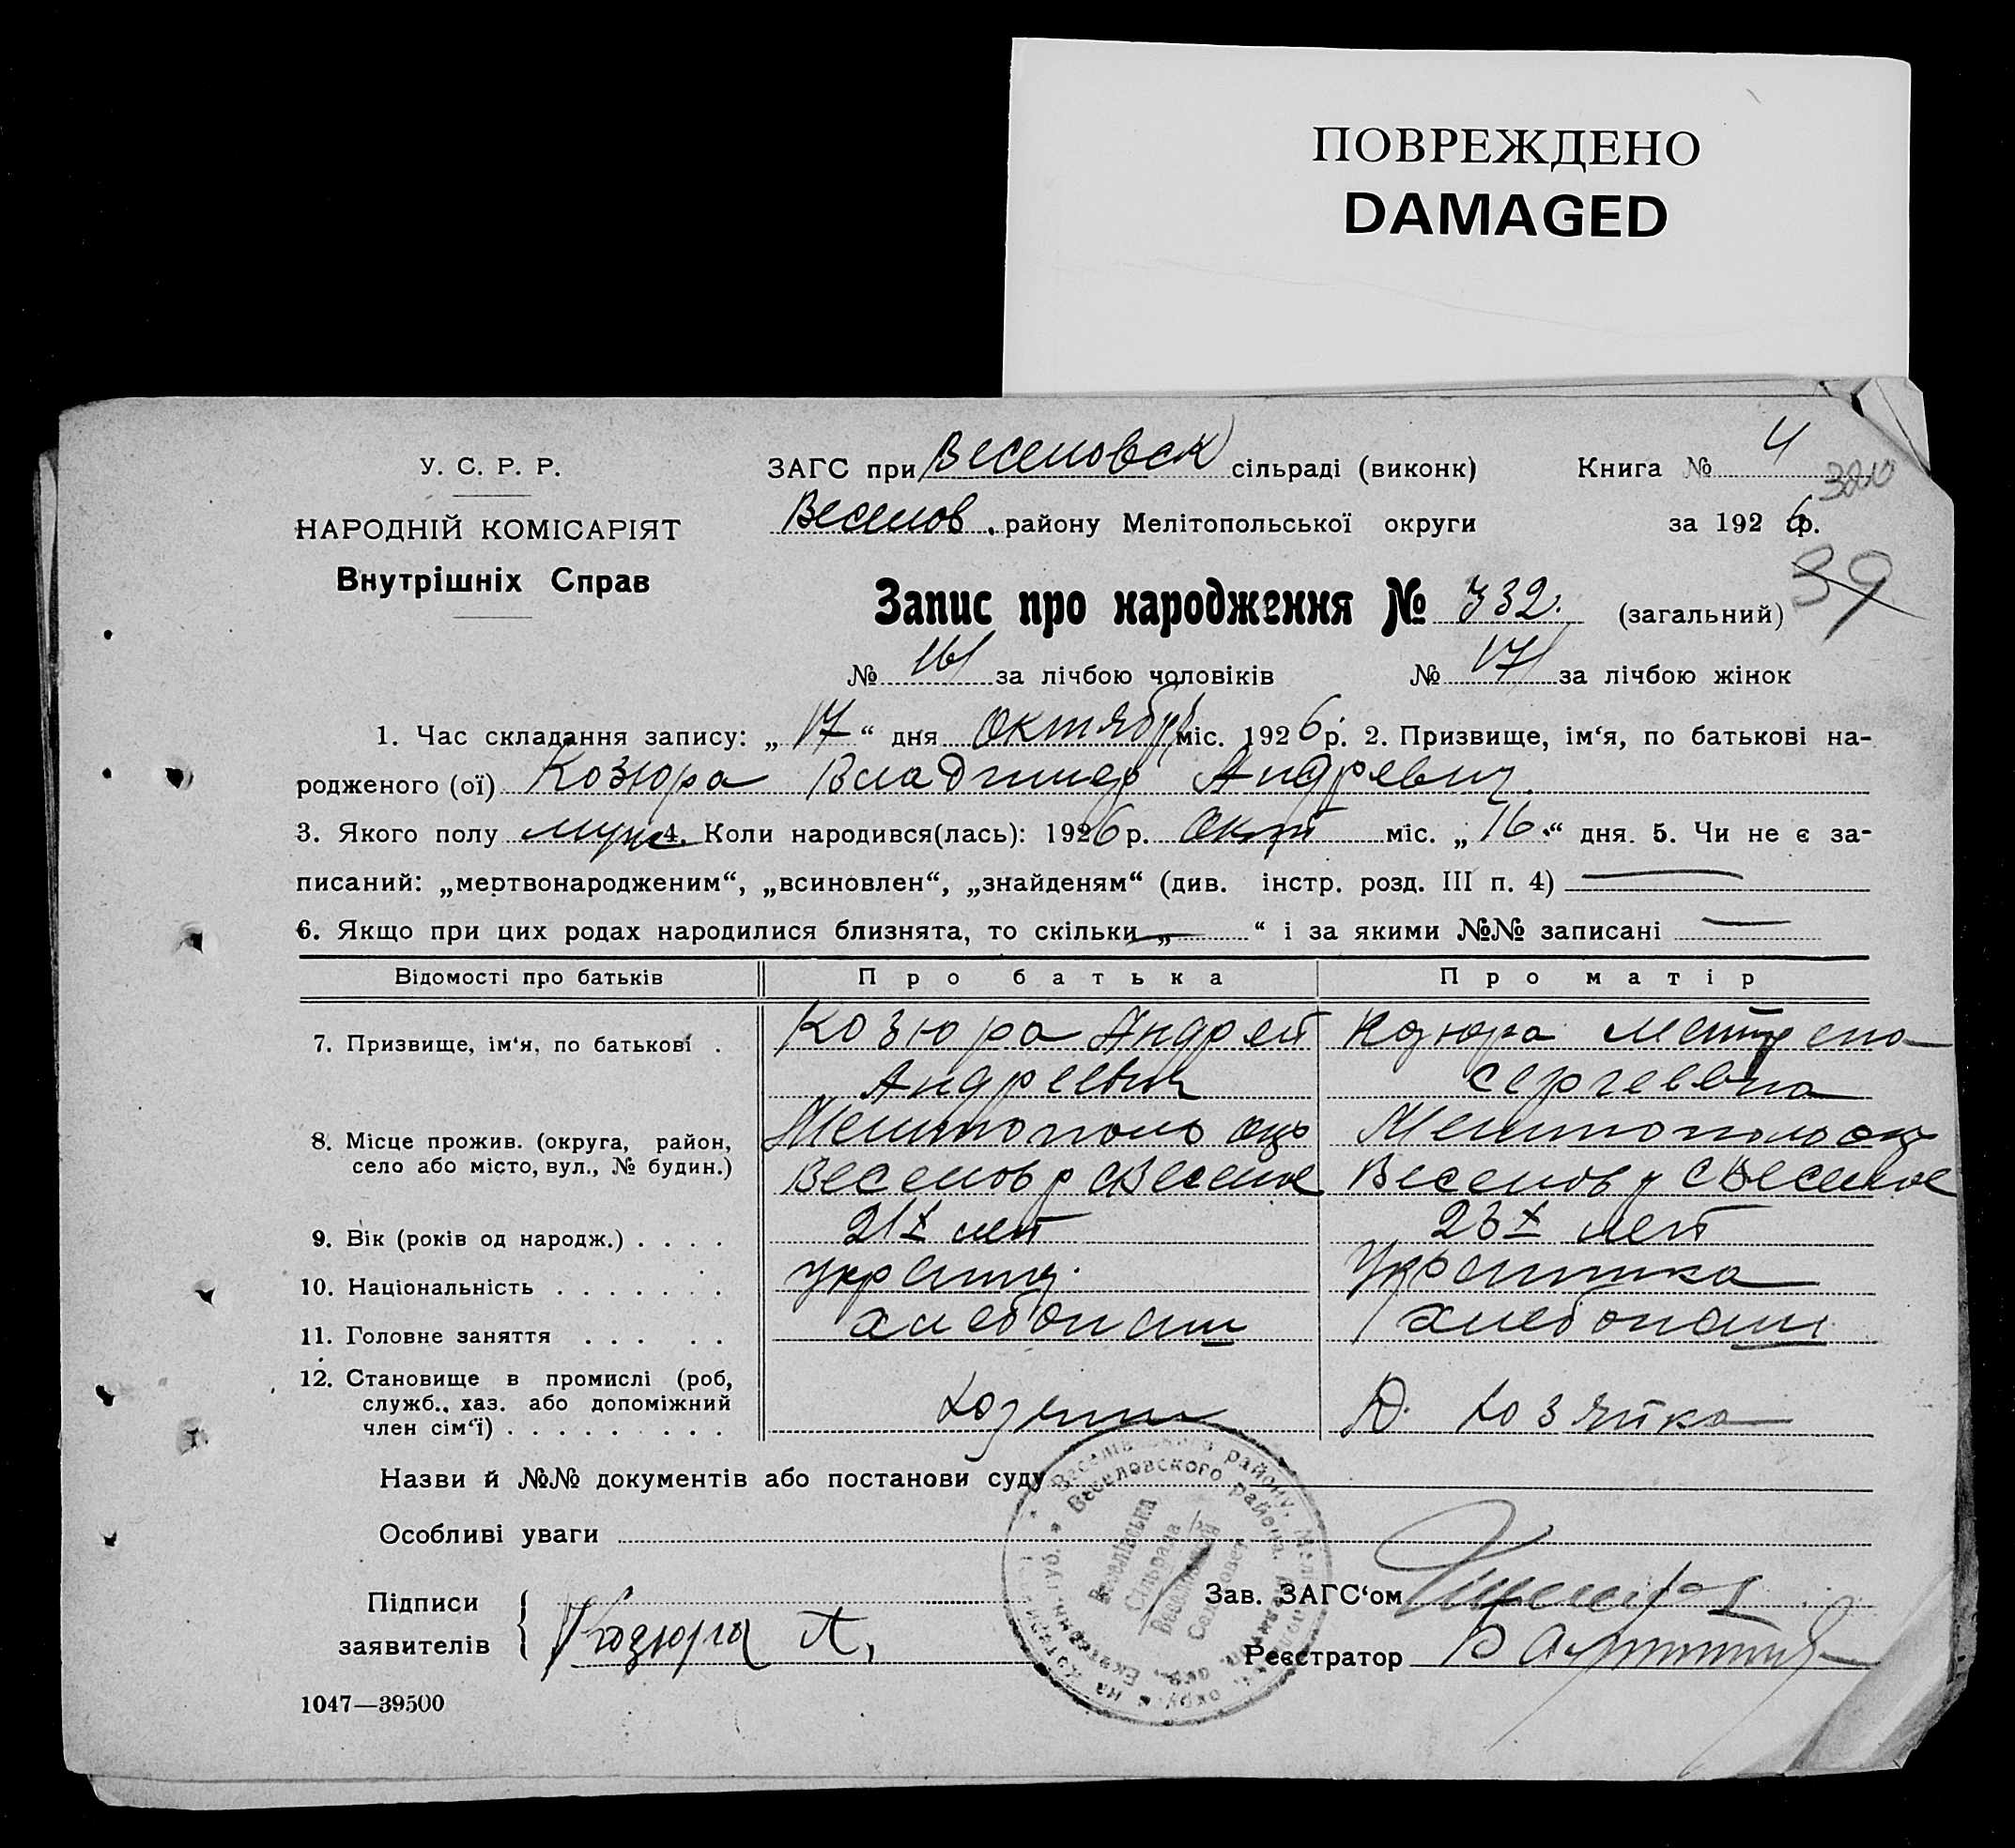 ПОВРЕЖДЕНО
DAMAGED
У. С. Р. Р.
НАРОДНІЙ КОМІСАРІЯТ
Внутрішніх Справ
ЗАГС при Веселовск сільраді (виконк) Книга № 4
320
Веселов. району Мелітопольської округи за 1926 р.
39
Запис про народження № 332. (загальний)
№ 161 за лічбою чоловіків № 171 за лічбою жінок
1. Час складання запису: „17“ дня Октября міс. 1926 р. 2. Призвище, ім‘я, по батькові на-
родженого (ої) Козюра Владимир Андревич
3. Якого полу муж 4. Коли народився(лась): 1926 р. Окт міс. „16.“ дня. 5. Чи не є за-
писаний: „мертвонародженим“, „всиновлен“, „знайденям“ (див. інстр. розд. III п. 4) —
6. Якщо при цих родах народилися близнята, то скільки „—“ і за якими №№ записані —
Відомості про батьків Про батька Про матір
7. Призвище, ім‘я, по батькові . Козюра Андрей Козюра Матрена
Андреевич Сергеевна
8. Місце прожив. (округа, район, Мелитополь окр Мелитополь окр
село або місто, вул., № будин.) Веселов р с Веселое Веселов р с Веселое
9. Вік (років од народж.) . . . . 21 х лет 23 х лет
10. Національність . . . . . . . украинц. Украинка
11. Головне заняття . . . . . хлебопаш хлебопаш
12. Становище в промислі (роб,
служб., хаз. або допоміжний
член сім‘ї) . . . . . . . . . хозяин Д. хозяйка
Назви й №№ документів або постанови суду
Особливі уваги
Веселівська
Сільрада
Веселовский
Сельсовет
Веселовского района.
Підписи
заявителів Козюра А.
Зав. ЗАГС‘ом
Реєстратор
1047—39500